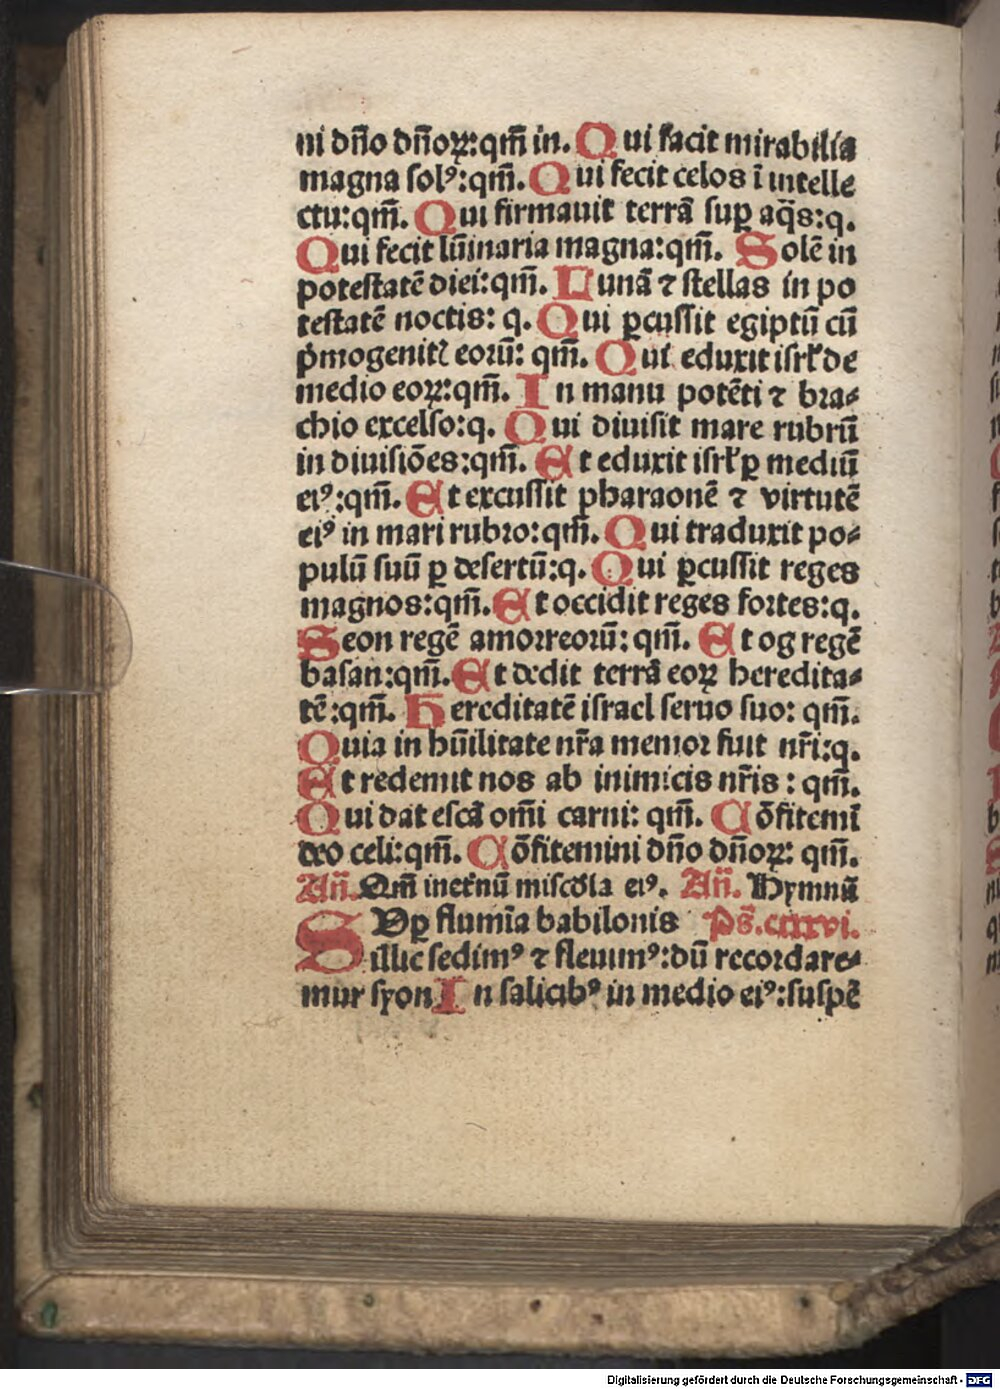 ni dño dñoꝝ:qm̃ in. Qui facit mirabilia
magna solꝰ:qm̃. Qui fecit celos ī intelle
ctu:qm̃. Qui firmauit terrā sup̱ aq̄s:q.
Qui fecit lūinaria magna:qm̃. Solē in
potestatē diei:qm̃. Lunā ⁊ stellas in po
testatē noctis: q. Qui ꝑcussit egiptū cū
p̄mogenitꝭ eorū: qm̃. Qui eduxit isrl̓ de
medio eoꝝ:qm̃. In manu potēti ⁊ bra⸗
chio excelso:q. Qui diuisit mare rubrū
in diuisiōes:qm̃. Et eduxit isrl̓ ꝑ mediū
eiꝰ:qm̃. Et excussit pharaonē ⁊ virtutē
eiꝰ in mari rubro:qm̃. Qui traduxit po⸗
pulū suū ꝑ desertū:q. Qui ꝑcussit reges
magnos:qm̃. Et occidit reges fortes:q.
Seon regē amorreorū: qm̃. Et og regē
basan:qm̃. Et dedit terrā eoꝝ heredita⸗
tē:qm̃. Hereditatē israel seruo suo: qm̃.
Quia in hūilitate nr̄a memor fuit nr̄i:q.
Et redemit nos ab inimicis nr̄is: qm̃.
Qui dat escā om̄i carni: qm̃. Cōfitemī
deo celi:qm̃. Cōfitemini dño dñoꝝ: qm̃.
Añ. Qm̄ inet̓nū mis͞cdia eiꝰ. Añ. Hymnū
SUp̱ flumīa babilonis Ps̄. cxxxvi.
illic sedimꝰ ⁊ fleuimꝰ:dū recordare⸗
mur syon In salicibꝰ in medio eiꝰ:suspē
Digitalisierung gefördert durch die Deutsche Forschungsgemeinschaft - DFG